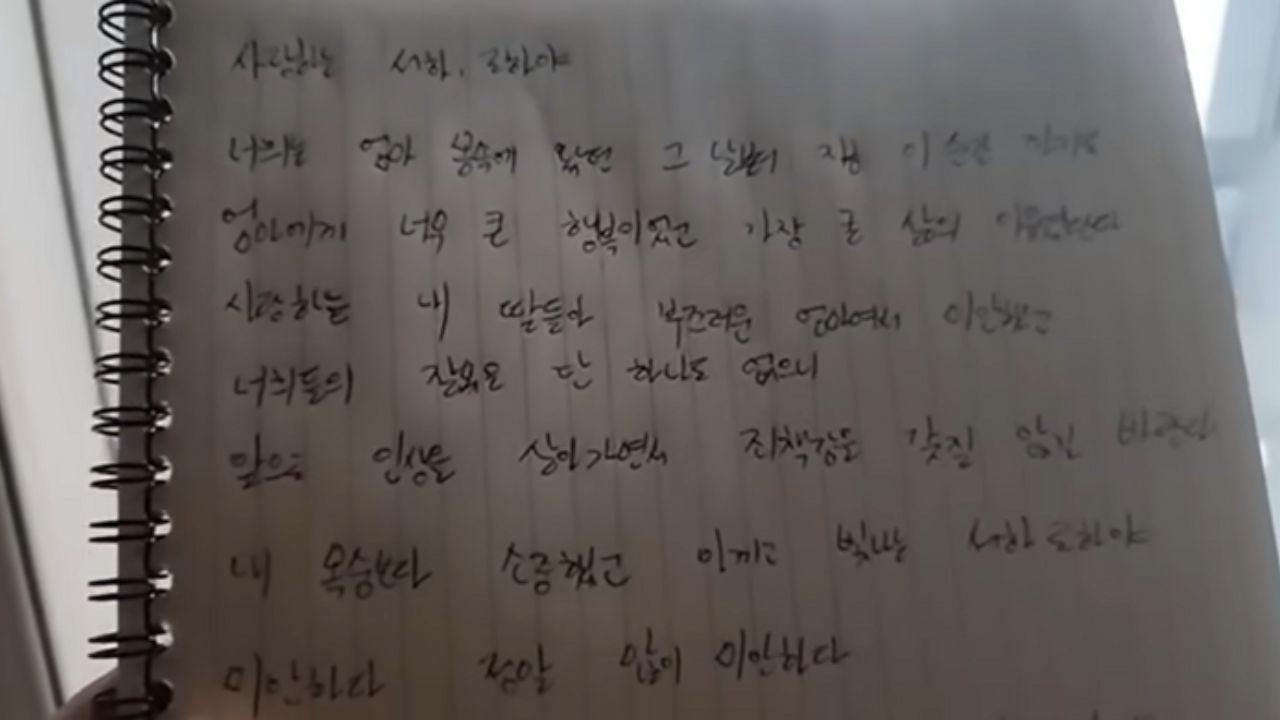 사랑하는 서하, 로하야
너희는 엄마 뱃속에 왔던 그 날부터 지금 이 순간 까지도
엄마에게 너무 큰 행복이었고 가장 큰 삶의 이유였단다
사랑하는 내 딸들아 부끄러운 엄마여서 미안했고
너희들의 잘못은 단 하나도 없으니
앞으로 인생을 살아가면서 죄책감을 갖질 않길 바란다
내 목숨보다 소중했고 아끼고 빛나는 서하 로하야
미안하다 정말 많이 미안하다